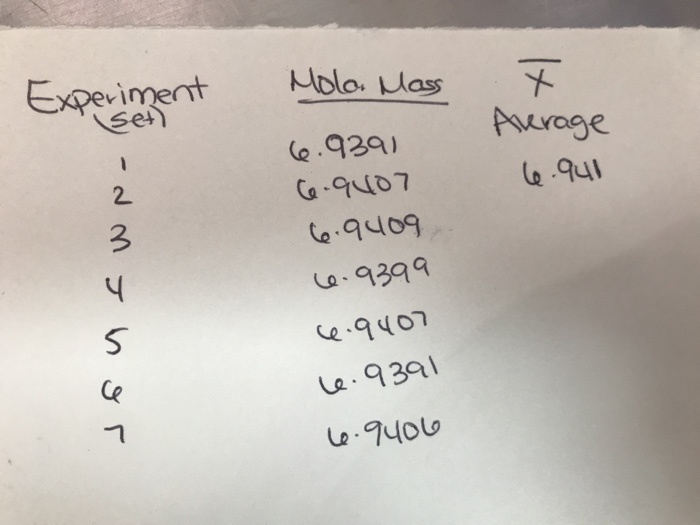 Experiment Molar Mass X̄
(set) Average
1 6.9391 6.941
2 6.9407
3 6.9409
4 6.9399
5 6.9407
6 6.9391
7 6.9406